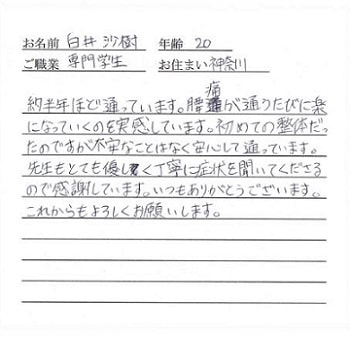 お名前 白井 沙樹 年齢 20
ご職業 専門学生 お住まい 神奈川
約半年ほど通っています。腰痛が通うたびに楽
になっていくのを実感しています。初めての整体だっ
たのですが不安なことはなく安心して通っています。
先生もとても優しく丁寧に症状を聞いてくださる
ので感謝しています。いつもありがとうございます。
これからもよろしくお願いします。